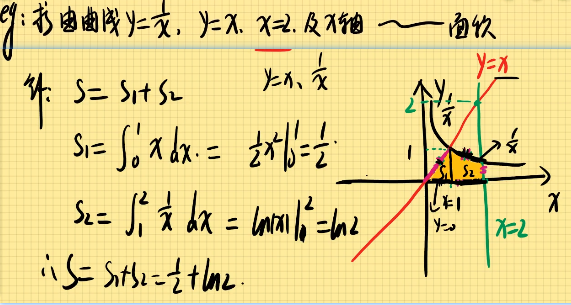 eg: 求由曲线 y=1/x, y=x, x=2, 及x轴 ～ 面积
解: S = S₁+S₂
y=x、1/x
S₁ = ∫₀¹ x dx. = ½x²|₀¹ = ½.
S₂ = ∫₁² 1/x dx = ln|x||₀² = ln2
∴ S = S₁+S₂ = ½ + ln2.
y=x
y
2
1/x
1
1/x
S₁ S₂
x=1
x
y=0
x=2